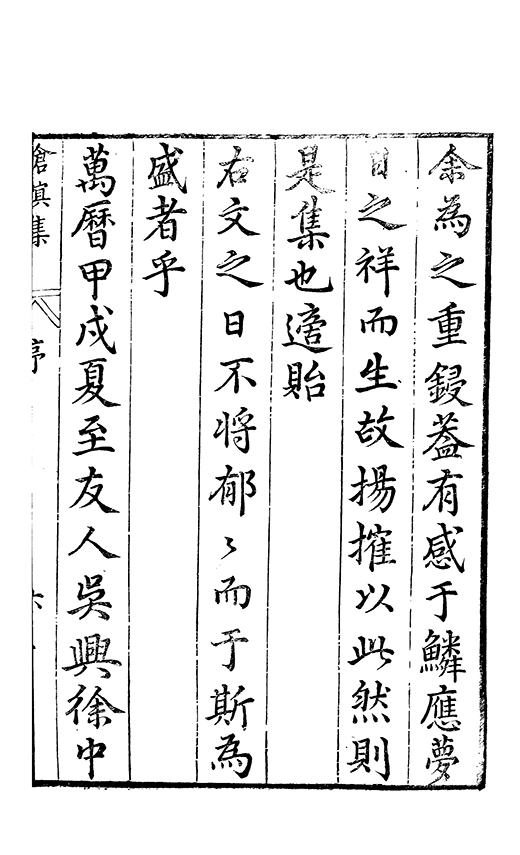 余為之重鋟葢有感于鱗應夢
日之祥而生故揚搉以此然則
是集也適貽
右文之日不將郁〻而于斯為
盛者乎
萬曆甲戍夏至友人吳興徐中
滄溟集
序
六